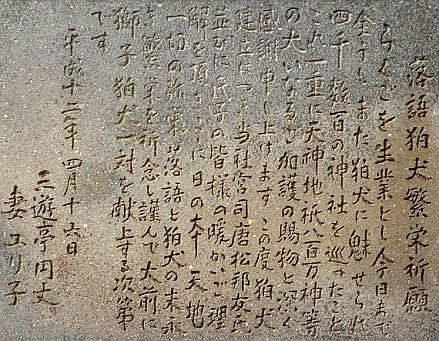 落語狛犬繁栄祈願
らくごを生業とし今日まで
全うしまた狛犬に魅せられ
四千数百の神社を巡ったこと
これ一重に天神地祇八百万神等
の大いなるご加護の賜物と深く
感謝申し上げます この度狛犬
建立につき当社宮司唐松邦女氏
並びに氏子の皆様の暖かいご理
解を頂き ここに日の本 天地
一切の弥栄 落語と狛犬の末永
き繁栄を祈念し謹んで大前に
獅子狛犬一対を献上する次第
です
平成十二年 四月十六日
三遊亭円丈
妻 ユリ子